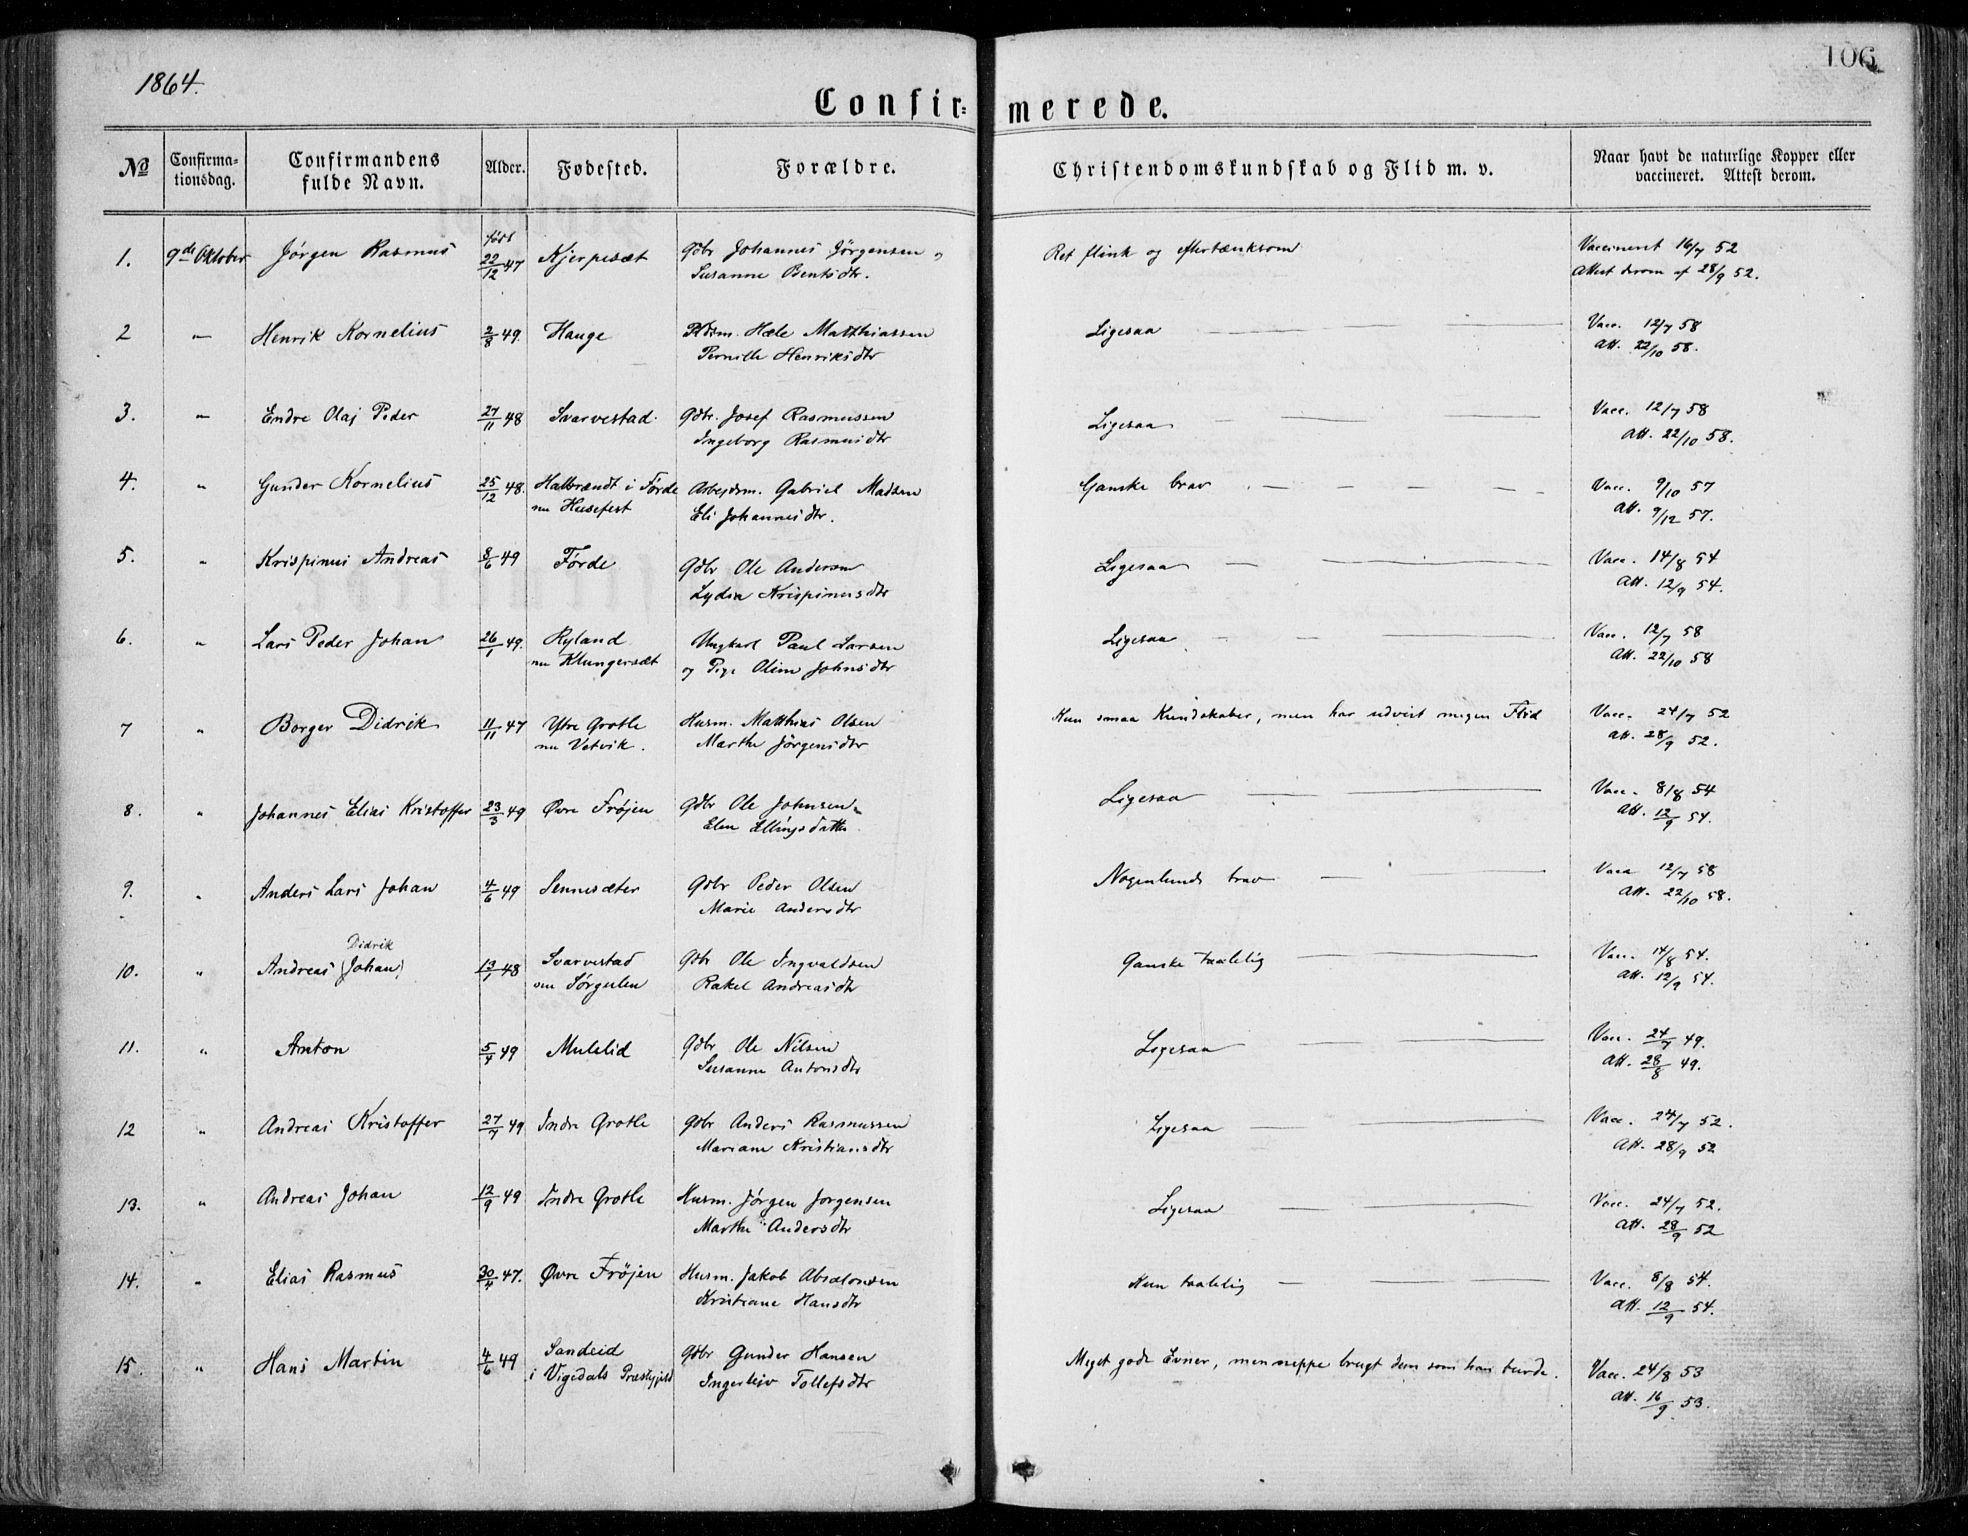 1864.
106
Confir= merede.
No Confirma=tionsdag. Confirmandens fulde Navn. Alder. Fødested. Forældre. Christendomskundskab og Flid m. v. Naar havt de naturlige Kopper eller vaccineret. Attest derom.
1. 9de Oktober Jørgen Rasmus født 22/12 47 Kjerpesæt Gdbr Johannes Jørgensen og Ret flink og eftertænksom Vaccineret 16/7 52
Susanne Bentsdtr. Attest derom af 28/9 52.
2 — Henrik Kornelius 2/8 49. Hauge Hæle Matthiassen Ligesaa Vacc. 12/7 58
Pernille Henriksdtr Att. 22/10 58.
3. — Endre Olaj Peder 27/11 48 Svarvestad Gdbr. Josef Rasmussen Ligesaa Vacc. 12/7 58
Ingeborg Rasmusdtr Att. 22/10 58.
4. " Gunder Kornelius 25/12 48. Halbrendt i Førde Arbejdsm. Gabriel Madsen Ganske brav Vacc. 9/10 57
nu Husefest Eli Johannesdtr. Att. 9/12 57.
5. " Krispinus Andreas 8/6 49 Førde Gdbr Ole Andersen Ligesaa Vacc. 14/8 54
Lydia Krispinusdtr Att. 12/9 54.
6. " Lars Peder Johan 26/1 49. Ryland Ungkarl Paul Larsen Ligesaa Vacc. 12/7 58
nu Klungersæt og Pige Oline Johnsdtr Att. 22/10 58
7 " Borger Didrik 11/11 47 Ytre Grotle Husm. Matthias Olsen Kun smaa Kundskaber, men har udvist megen Flid Vacc. 24/7 52
nu Vetvik. Marthe Jørgensdtr Att. 28/9 52.
8. " Johannes Elias Kristoffer 23/3 49 Øvre Frøjen Gdbr Ole Johnsen Ligesaa Vacc. 8/8 54
Elen Ellingsdatter Att. 12/9 54.
9. " Anders Lars Johan 4/6 49 Sennesæter Gdbr Peder Olsen Nogenlunde brav Vacc 12/7 58
Marie Andersdtr Att. 22/10 58.
Didrik
10. " Andreas (Johan) 13/1 48 Svarvestad Gdbr Ole Ingvaldsen Ganske taalelig Vacc. 14/8 54.
nu Sørgulen Rakel Andreasdtr Att. 12/9 54.
11. " Anton 5/4 49 Mulelid Gdbr Ole Nilsen Ligesaa Vacc. 24/7 49.
Susanne Antonsdtr Att. 28/8 49.
12 " Andreas Kristoffer 27/7 49 Indre Grotle Gdbr Anders Rasmussen Ligesaa Vacc. 24/7 52.
Mariane Kristiansdtr Att. 28/9 52
13. " Andreas Johan 12/9 49 Indre Grotle Husm. Jørgen Jørgensen Ligesaa Vacc. 24/7 52.
Marthe Andersdtr Att. 28/9 52
14. " Elias Rasmus 30/4 47. Øvre Frøjen Husm. Jakob Absalonsen Kun taalelig Vacc. 8/8 54.
Kristiane Hansdtr Att. 12/9 54.
15. " Hans Martin 4/6 49 Sandeid Gdbr Gunder Hansen Meget gode Evner, men neppe brugt dem som han burde. Vacc. 24/8 53
i Vigedals Præstgjeld Ingerleiv Tollefsdtr Att. 16/9 53.